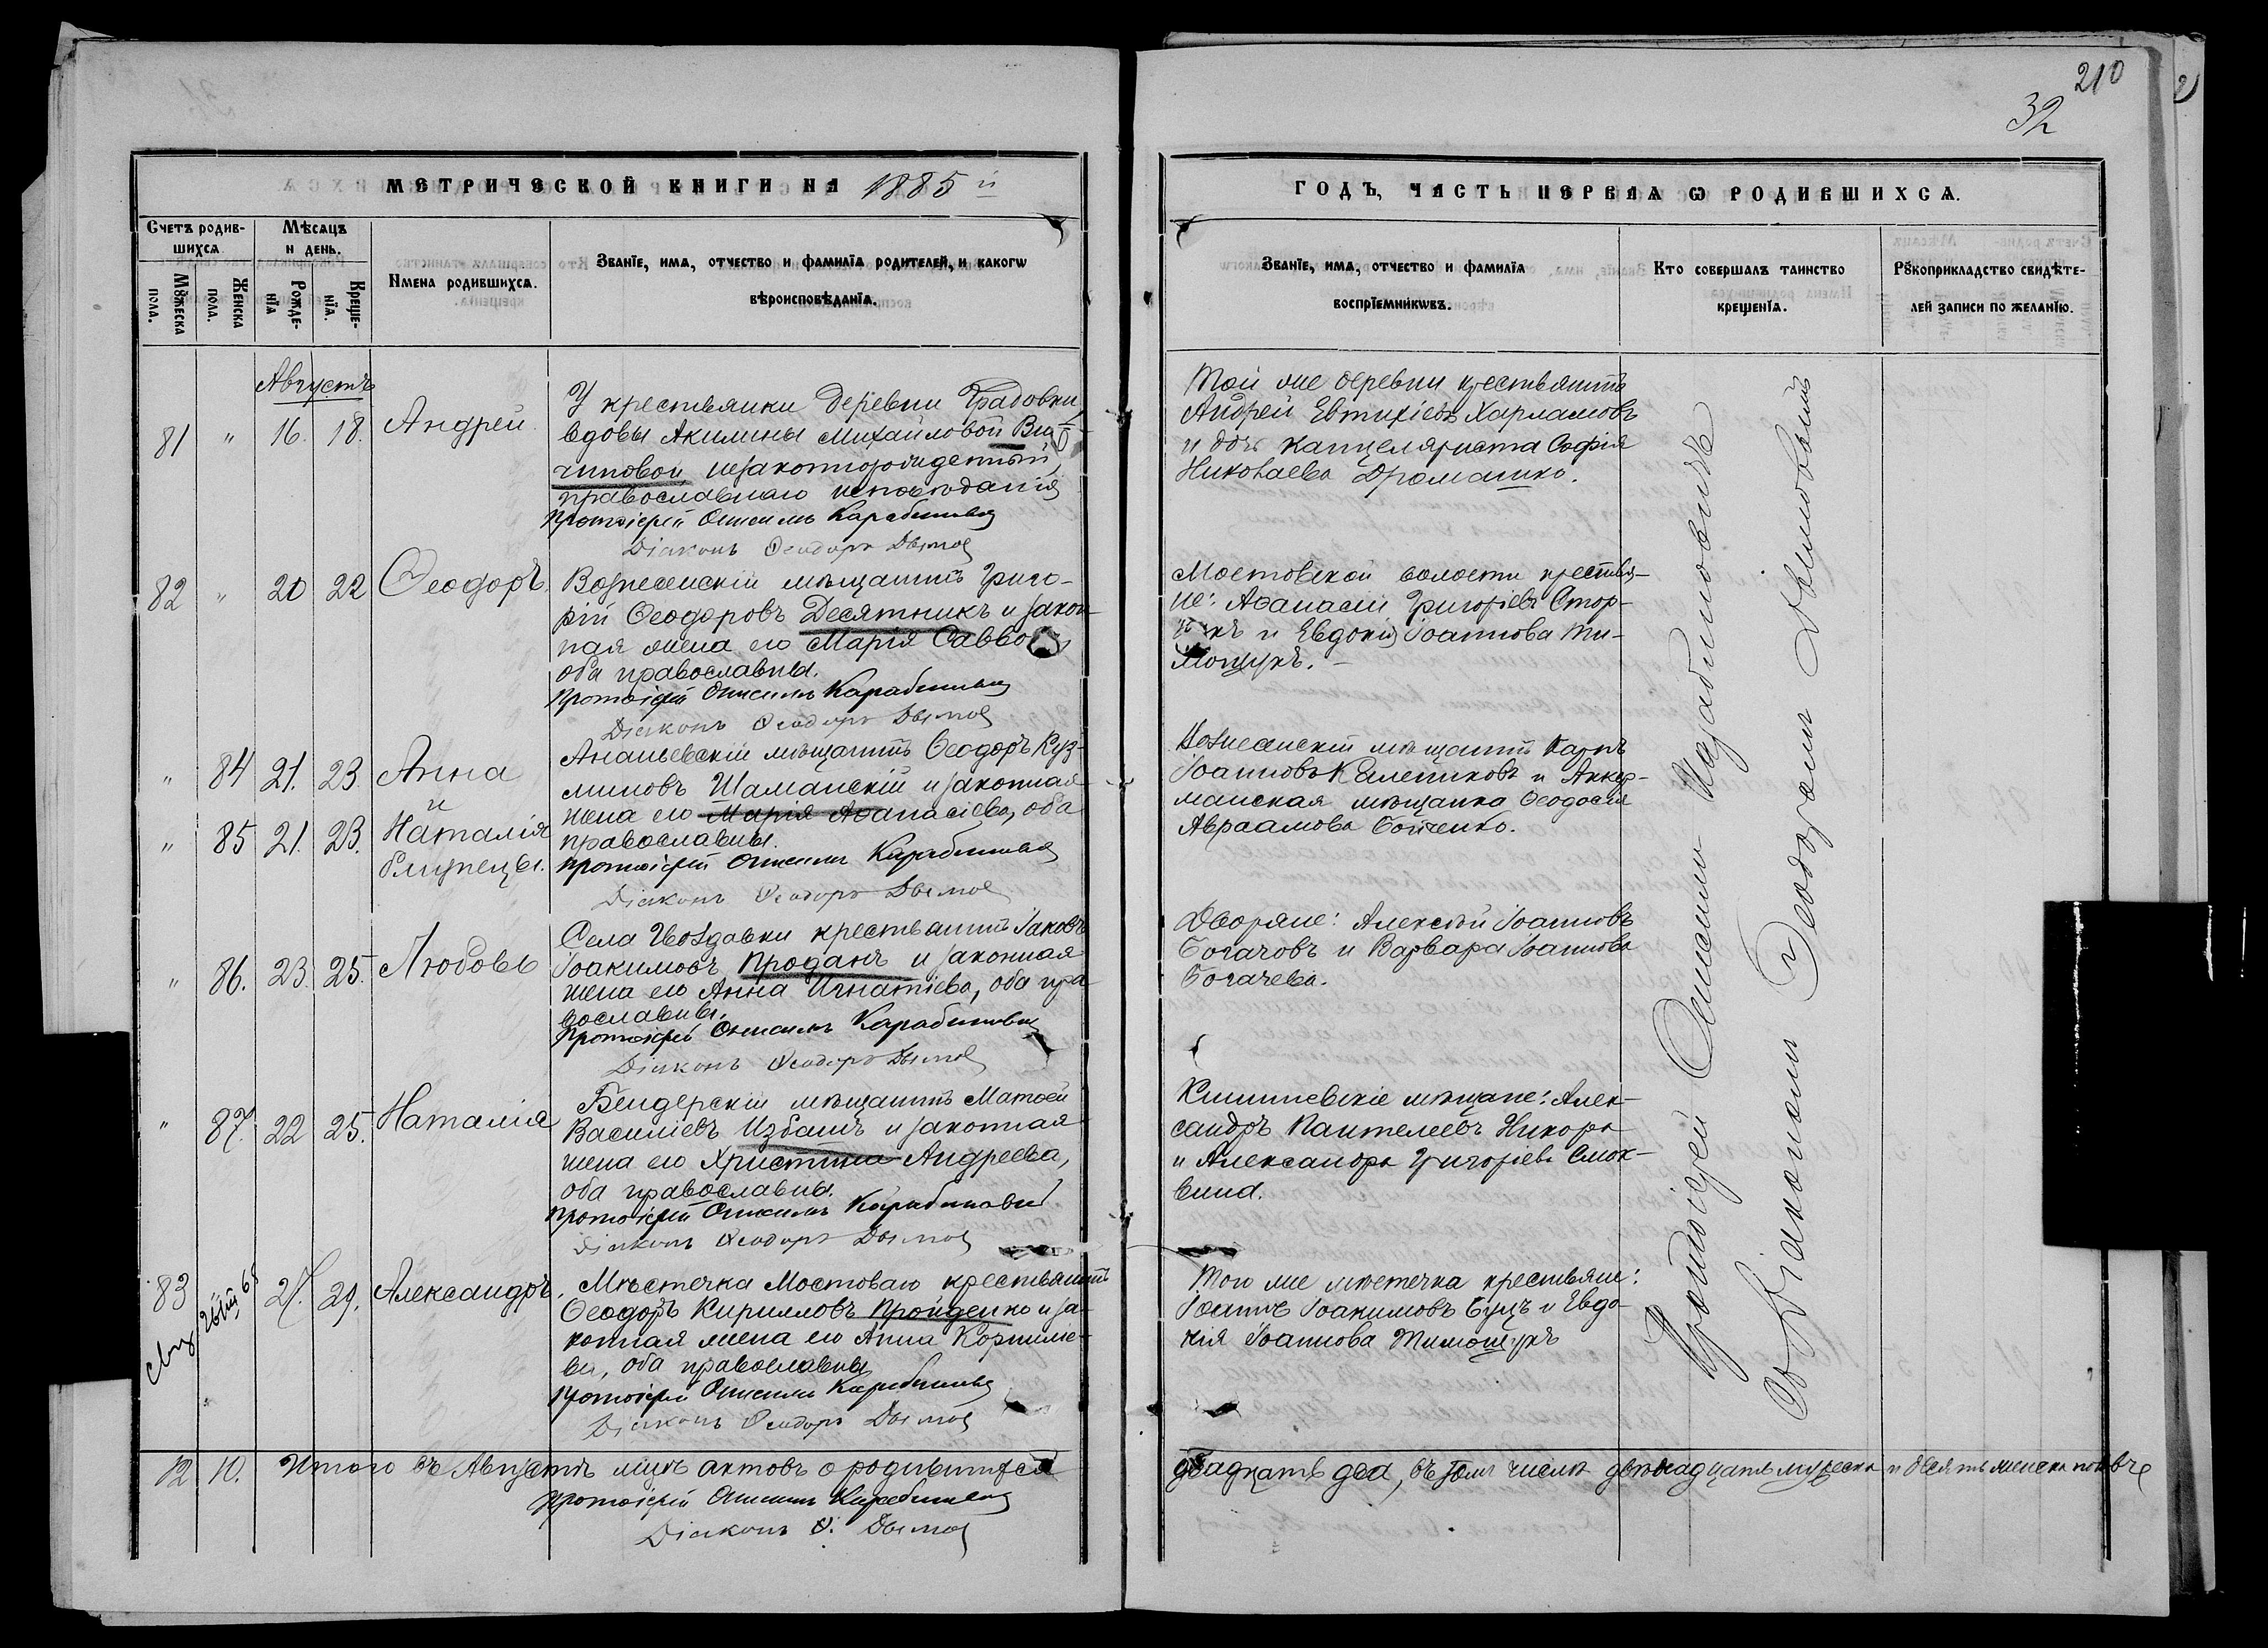 210
32
МЕТРИЧЕСКОЙ КНИГИ НА 1885 й
ГОДЪ, ЧАСТЬ ПЕРВАЯ Ѡ РОДИВШИХСЯ.
Счетъ родив-
шихся
Мѣсяцъ
и день.
Мꙋжеска
пола.
Женска
пола.
Рожде-
нїя
Креще-
нїя.
Имена родившихся.
Званїе, имя, отчество и фамилїя родителей, и какогѡ
вѣроисповѣданїя.
Званїе, имя, отчество и фамилїя
воспрїемникѡвъ.
Кто совершалъ таинство
крещенїя.
Рꙋкоприкладство свидѣте-
лей записи по желанїю.
Августъ
81 " 16. 18. Андрей
У крестьянки деревни Градовки,
вдовы Акилины Михайловой
чиновой, незаконнорожденный,
православнаго исповѣданія
Протоіерей Онисимъ Карабиновичъ
Діаконъ Ѳеодоръ Дымов
Той же деревни крестьянинъ
Андрей Евтихіевъ Харламовъ
и дочь канцеляриста Софія
Николаева Дромашко.
82 " 20 22 Ѳеодоръ
Вознесенскій мѣщанинъ Григо-
рій Ѳеодоровъ Десятникъ и закон-
ная жена его Марія Савво
оба православны.
Протоіерей Онисимъ Карабиновичъ
Діаконъ Ѳеодоръ Дымов
Мостовской волости крестья-
не: Аѳанасій Григорьевъ
и Евдокія Іоаннова Ти-
мощукъ.
" 84 21. 23 Анна
и
" 85 21. 23. Наталія
близнецы.
Ананьевскій мѣщанинъ Ѳеодоръ Куз-
миновъ Шаманскій и законная
жена его Марія Аѳанасіева, оба
православны.
Протоіерей Онисимъ Карабиновичъ
Діаконъ Ѳеодоръ Дымов
Вознесенскій мѣщанинъ Карпъ
Іоанновъ Калениковъ и Аккер-
манская мѣщанка Ѳеодосія
Авраамова Бойченко.
" 86. 23. 25. Любовь
Села Гвоздавки крестьянинъ Іаковъ
Іоакимовъ Проданъ и законная
жена его Анна Игнатіева, оба пра-
вославны.
Протоіерей Онисимъ Карабиновичъ
Діаконъ Ѳеодоръ Дымов
Дворяне: Алексѣй Іоанновъ
Богачовъ и Варвара Іоаннова
Богачева.
" 87. 22 25. Наталія
Бендерскій мѣщанинъ Матѳей
Василіевъ Избашъ и законная
жена его Христина Андреева,
оба православны.
Протоіерей Онисимъ Карабиновичъ
Діаконъ Ѳеодоръ Дымов
Кишиневскіе мѣщане: Алек-
сандръ Пантелеевъ Никора
и Александра Григоріева Смок-
вина.
83 27. 29. Александръ.
Мѣстечка Мостоваго крестьянинъ
Ѳеодоръ Кирилловъ Пройденко и за-
конная жена его Анна Корниліе-
ва, оба православны
Протоіерей Онисимъ Карабиновичъ
Діаконъ Ѳеодоръ Дымов
Того же мѣстечка крестьяне:
Іоаннъ Іоакимовъ Буцъ и Евдо-
кія Іоаннова Тимошукъ
Протоіерей Онисимъ Карабиновичъ
съ Діакономъ Ѳеодоромъ Дымовымъ
12 10. Итого въ Августѣ мцѣ актовъ о родившихся
двадцать два, въ томъ числѣ двѣнадцать мужеска и десять женска половъ
Протоіерей Онисимъ Карабиновичъ
Діаконъ Ѳ. Дымов